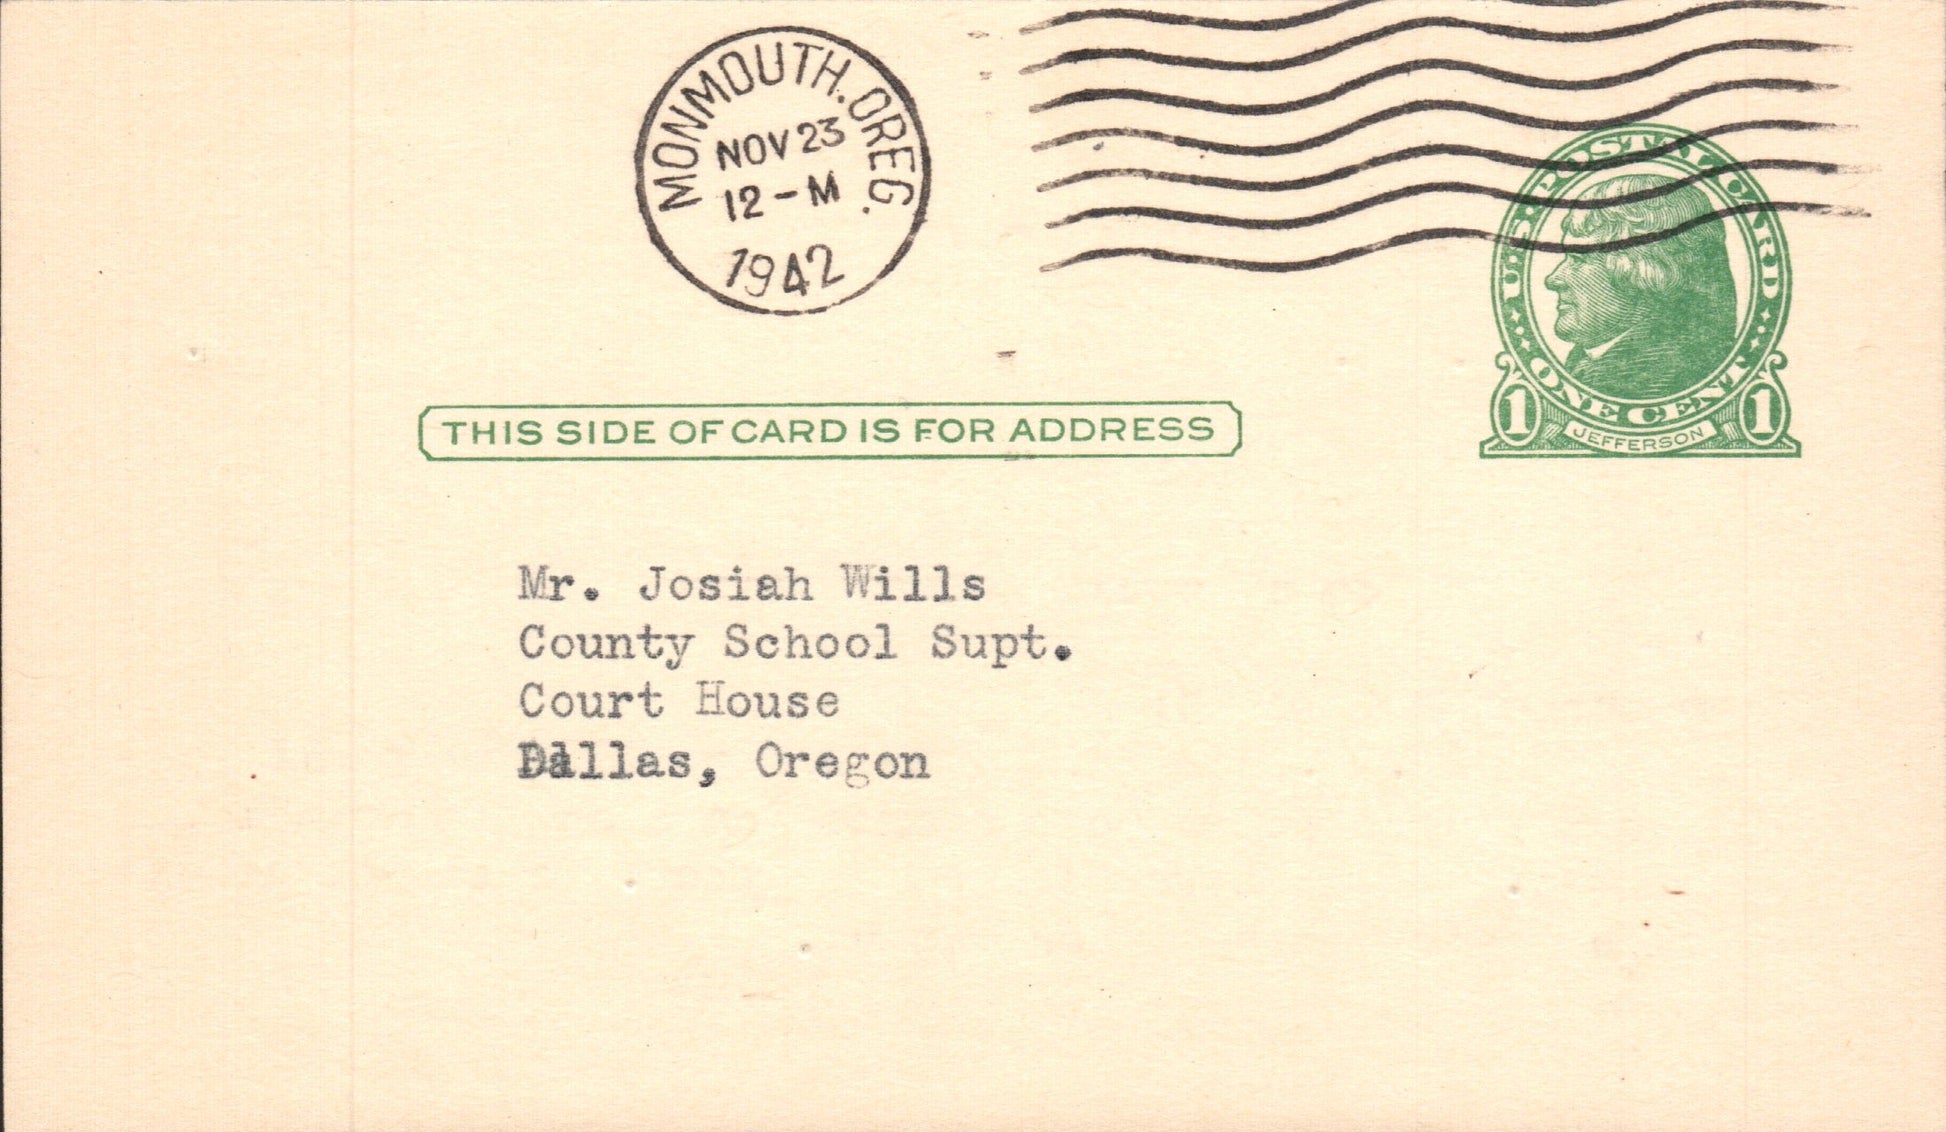 MONMOUTH. OREG.
NOV 23
12-M
1942
U.S. POSTAL CARD
ONE CENT
1 JEFFERSON 1
THIS SIDE OF CARD IS FOR ADDRESS
Mr. Josiah Wills
County School Supt.
Court House
Dallas, Oregon